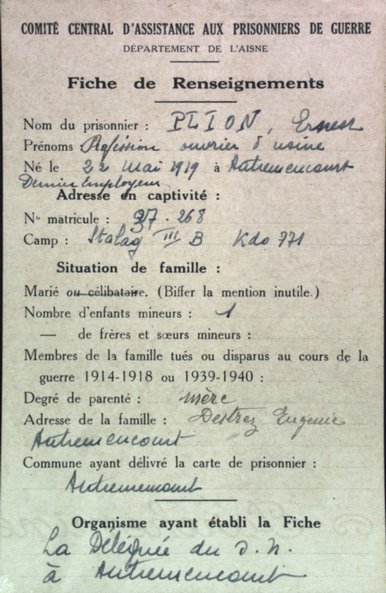 COMITÉ CENTRAL D'ASSISTANCE AUX PRISONNIERS DE GUERRE
DÉPARTEMENT DE L'AISNE
Fiche de Renseignements
Nom du prisonnier : PLION, Ernest
Prénoms : Profession ouvrier d'usine
Né le 22 mai 1919 à Autremencourt
Dernier Employeur
Adresse en captivité :
N° matricule : 37.268
Camp : Stalag III B Kdo 771
Situation de famille :
Marié ou célibataire. (Biffer la mention inutile.)
Nombre d'enfants mineurs : 1
— de frères et sœurs mineurs :
Membres de la famille tués ou disparus au cours de la
guerre 1914-1918 ou 1939-1940 :
Degré de parenté : mère
Adresse de la famille : Destrez Eugenie
Autremencourt
Commune ayant délivré la carte de prisonnier :
Autremencourt
Organisme ayant établi la Fiche
La Déléguée du S. N.
à Autremencourt